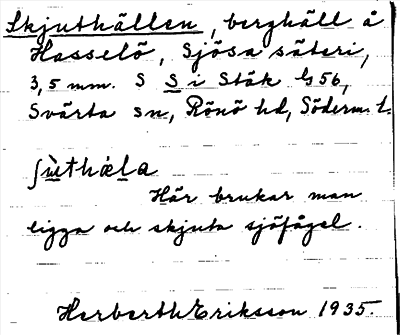 Skjuthällen, berghäll å
Hasselö, Sjösa säteri,
3,5 mm. S S i Stäk b 56,
Svärta sn, Rönö hd, Söderm. l.
ʃùthǽla
Här brukar man
ligga och skjuta sjöfågel.
Herberth Eriksson 1935.